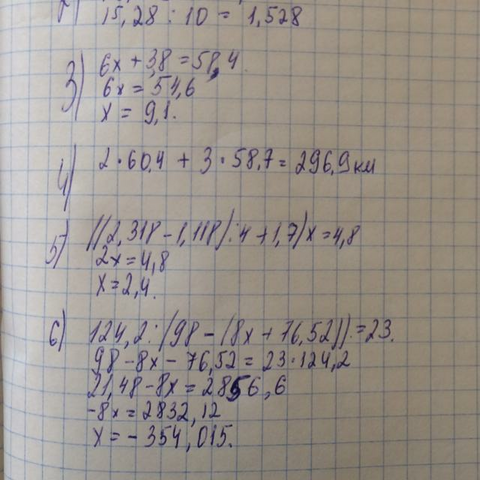 2)
15,28 : 10 = 1,528
3) 6x + 3,8 = 58,4
6x = 54,6
x = 9,1.
4) 2·60,4 + 3·58,7 = 296,9 км
5) ((2,318 - 1,118) : 4 + 1,7)x = 4,8
2x = 4,8
x = 2,4.
6) 124,2 : (98 - (8x + 76,52)) = 23.
98 - 8x - 76,52 = 23·124,2
21,48 - 8x = 2856,6
-8x = 2832,12
x = - 354,015.